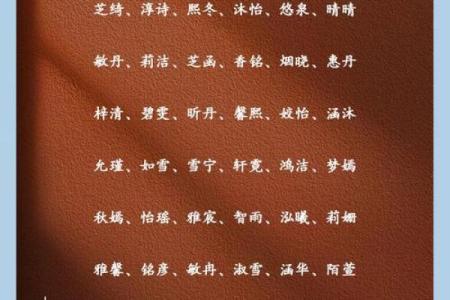 芝绮、淳诗、熙冬、沐怡、悠泉、晴晴
敏丹、莉洁、芝函、香铭、烟晓、惠丹
梓清、碧雯、昕丹、馨熙、姣怡、涵沐
允瑾、如雪、雪宁、轩霓、鸿洁、梦嫣
秋嫣、怡瑶、雅宸、智雨、泓曦、莉姗
雅馨、铭彦、敏冉、淑雪、涵华、陌萱